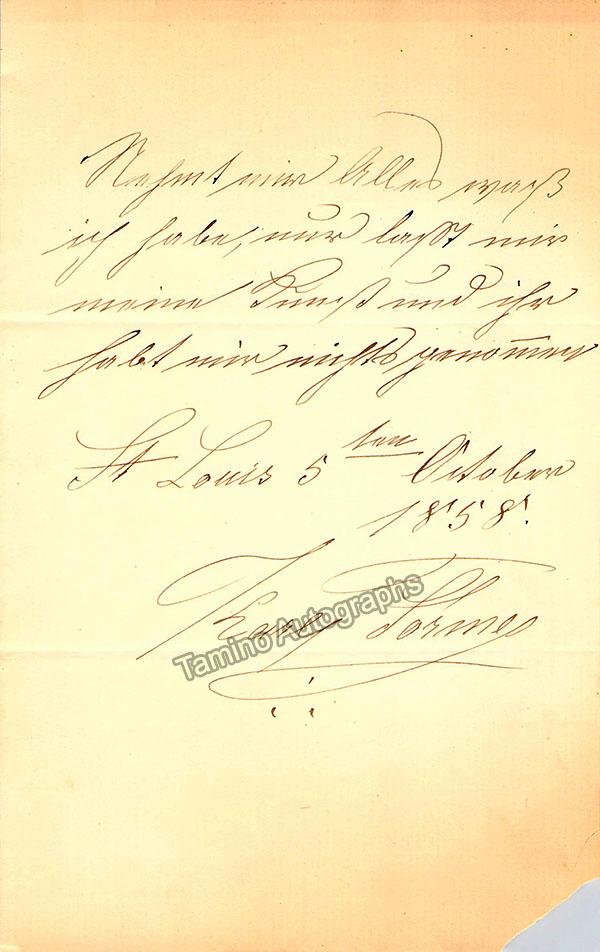 Nehmt mir Alles waß
ich habe, nur laßt mir
meine Kunst und ihr
habt mir nichts genom̅en
St Louis 5 ten October
1858.
Karl Formes
Tamino Autographs